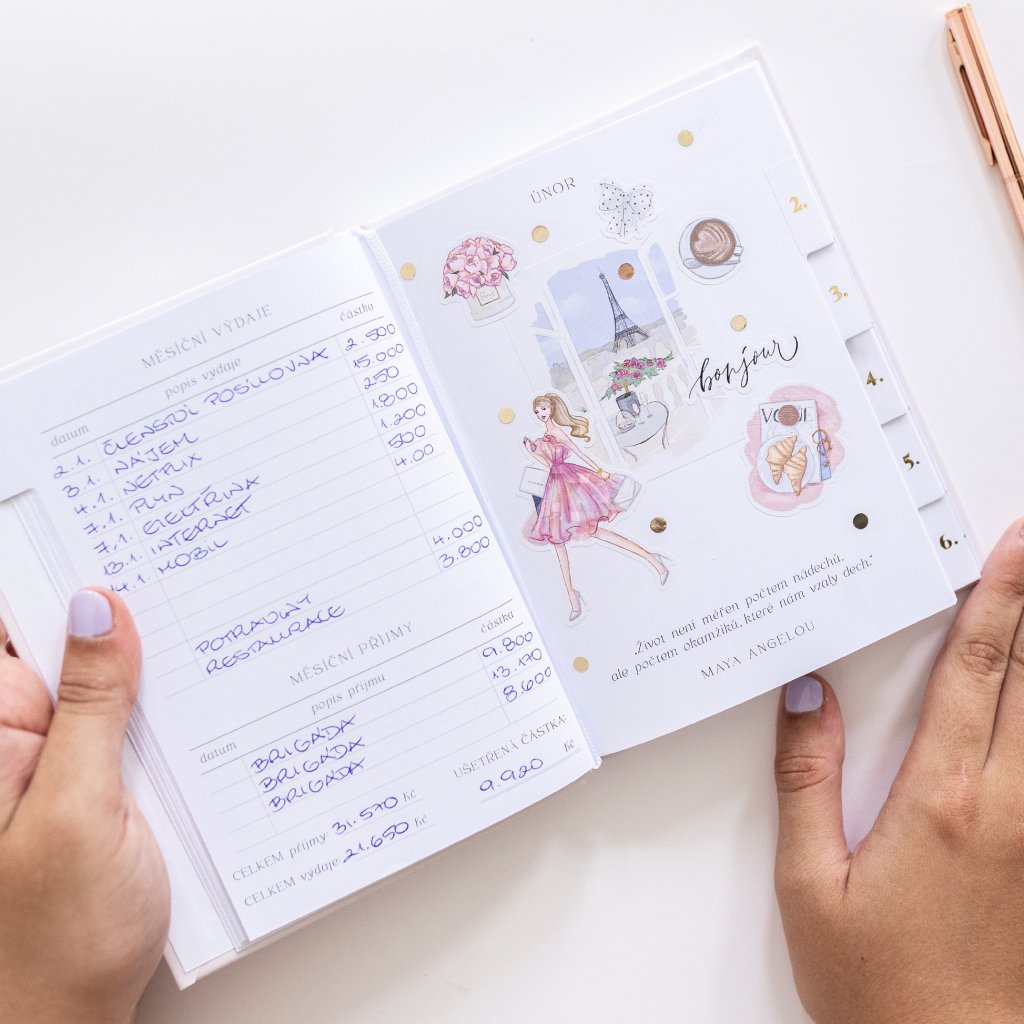 MĚSÍČNÍ VÝDAJE
datum popis výdaje částka
2.1. ČLENSTVÍ POSILOVNA 2.500
3.1. NÁJEM 15.000
4.1. NETFLIX 250
7.1. PLYN 1.800
7.1. ELEKTŘINA 1.200
13.1. INTERNET 500
14.1. MOBIL 4.00
POTRAVINY 4.000
RESTAURACE 3.800
MĚSÍČNÍ PŘÍJMY
datum popis příjmu částka
BRIGÁDA 9.800
BRIGÁDA 13.170
BRIGÁDA 8.600
CELKEM příjmy: 31.570 Kč
CELKEM výdaje: 21.650 Kč
UŠETŘENÁ ČÁSTKA:
9.920 Kč
ÚNOR
bonjour
VOGUE
„Život není měřen počtem nádechů,
ale počtem okamžiků, které nám vzaly dech.“
MAYA ANGELOU
2.
3.
4.
5.
6.